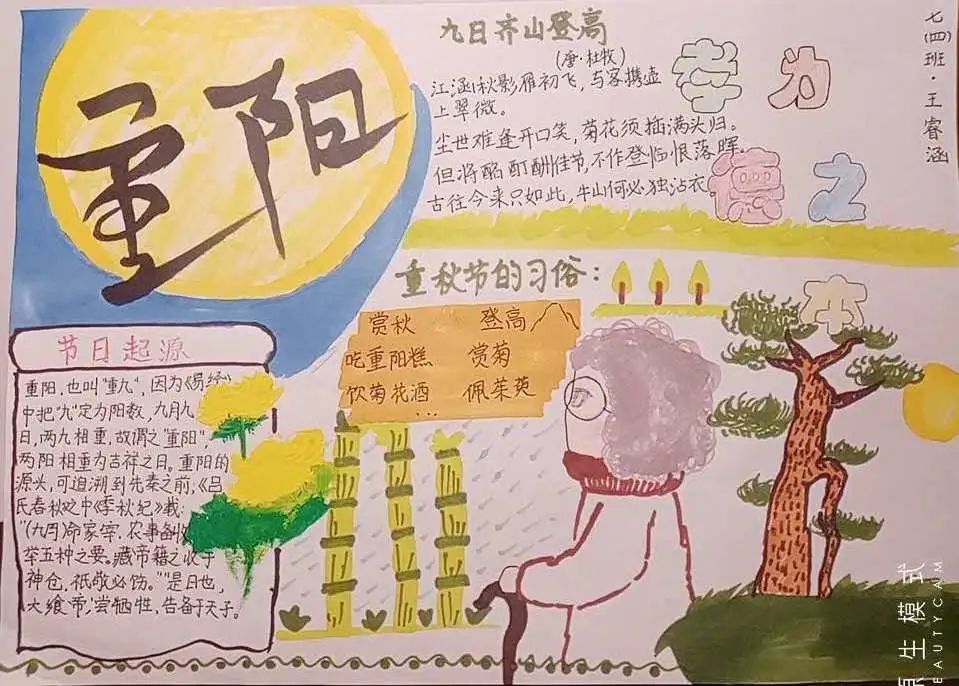 重阳
九日齐山登高
(唐·杜牧)
江涵秋影雁初飞，与客携壶
上翠微。
尘世难逢开口笑，菊花须插满头归。
但将酩酊酬佳节，不作登临恨落晖。
古往今来只如此，牛山何必独沾衣。
孝为
德之
本
七(四)班·王睿涵
重秋节的习俗：
赏秋 登高
吃重阳糕 赏菊
饮菊花酒 佩茱萸
...
节日起源
重阳，也叫"重九"，因为《易经》
中把"九"定为阳数，九月九
日，两九相重，故谓之"重阳"，
两阳相重为吉祥之日。重阳的
源头，可追溯到先秦之前，《吕
氏春秋》之中《季秋纪》载，
"(九月)命家宰，农事备收
举五种之要。藏帝籍之收于
神仓，祇敬必饬。""是日也，
大飨帝，尝牺牲，告备于天子。
生模式
BEAUTYCAM